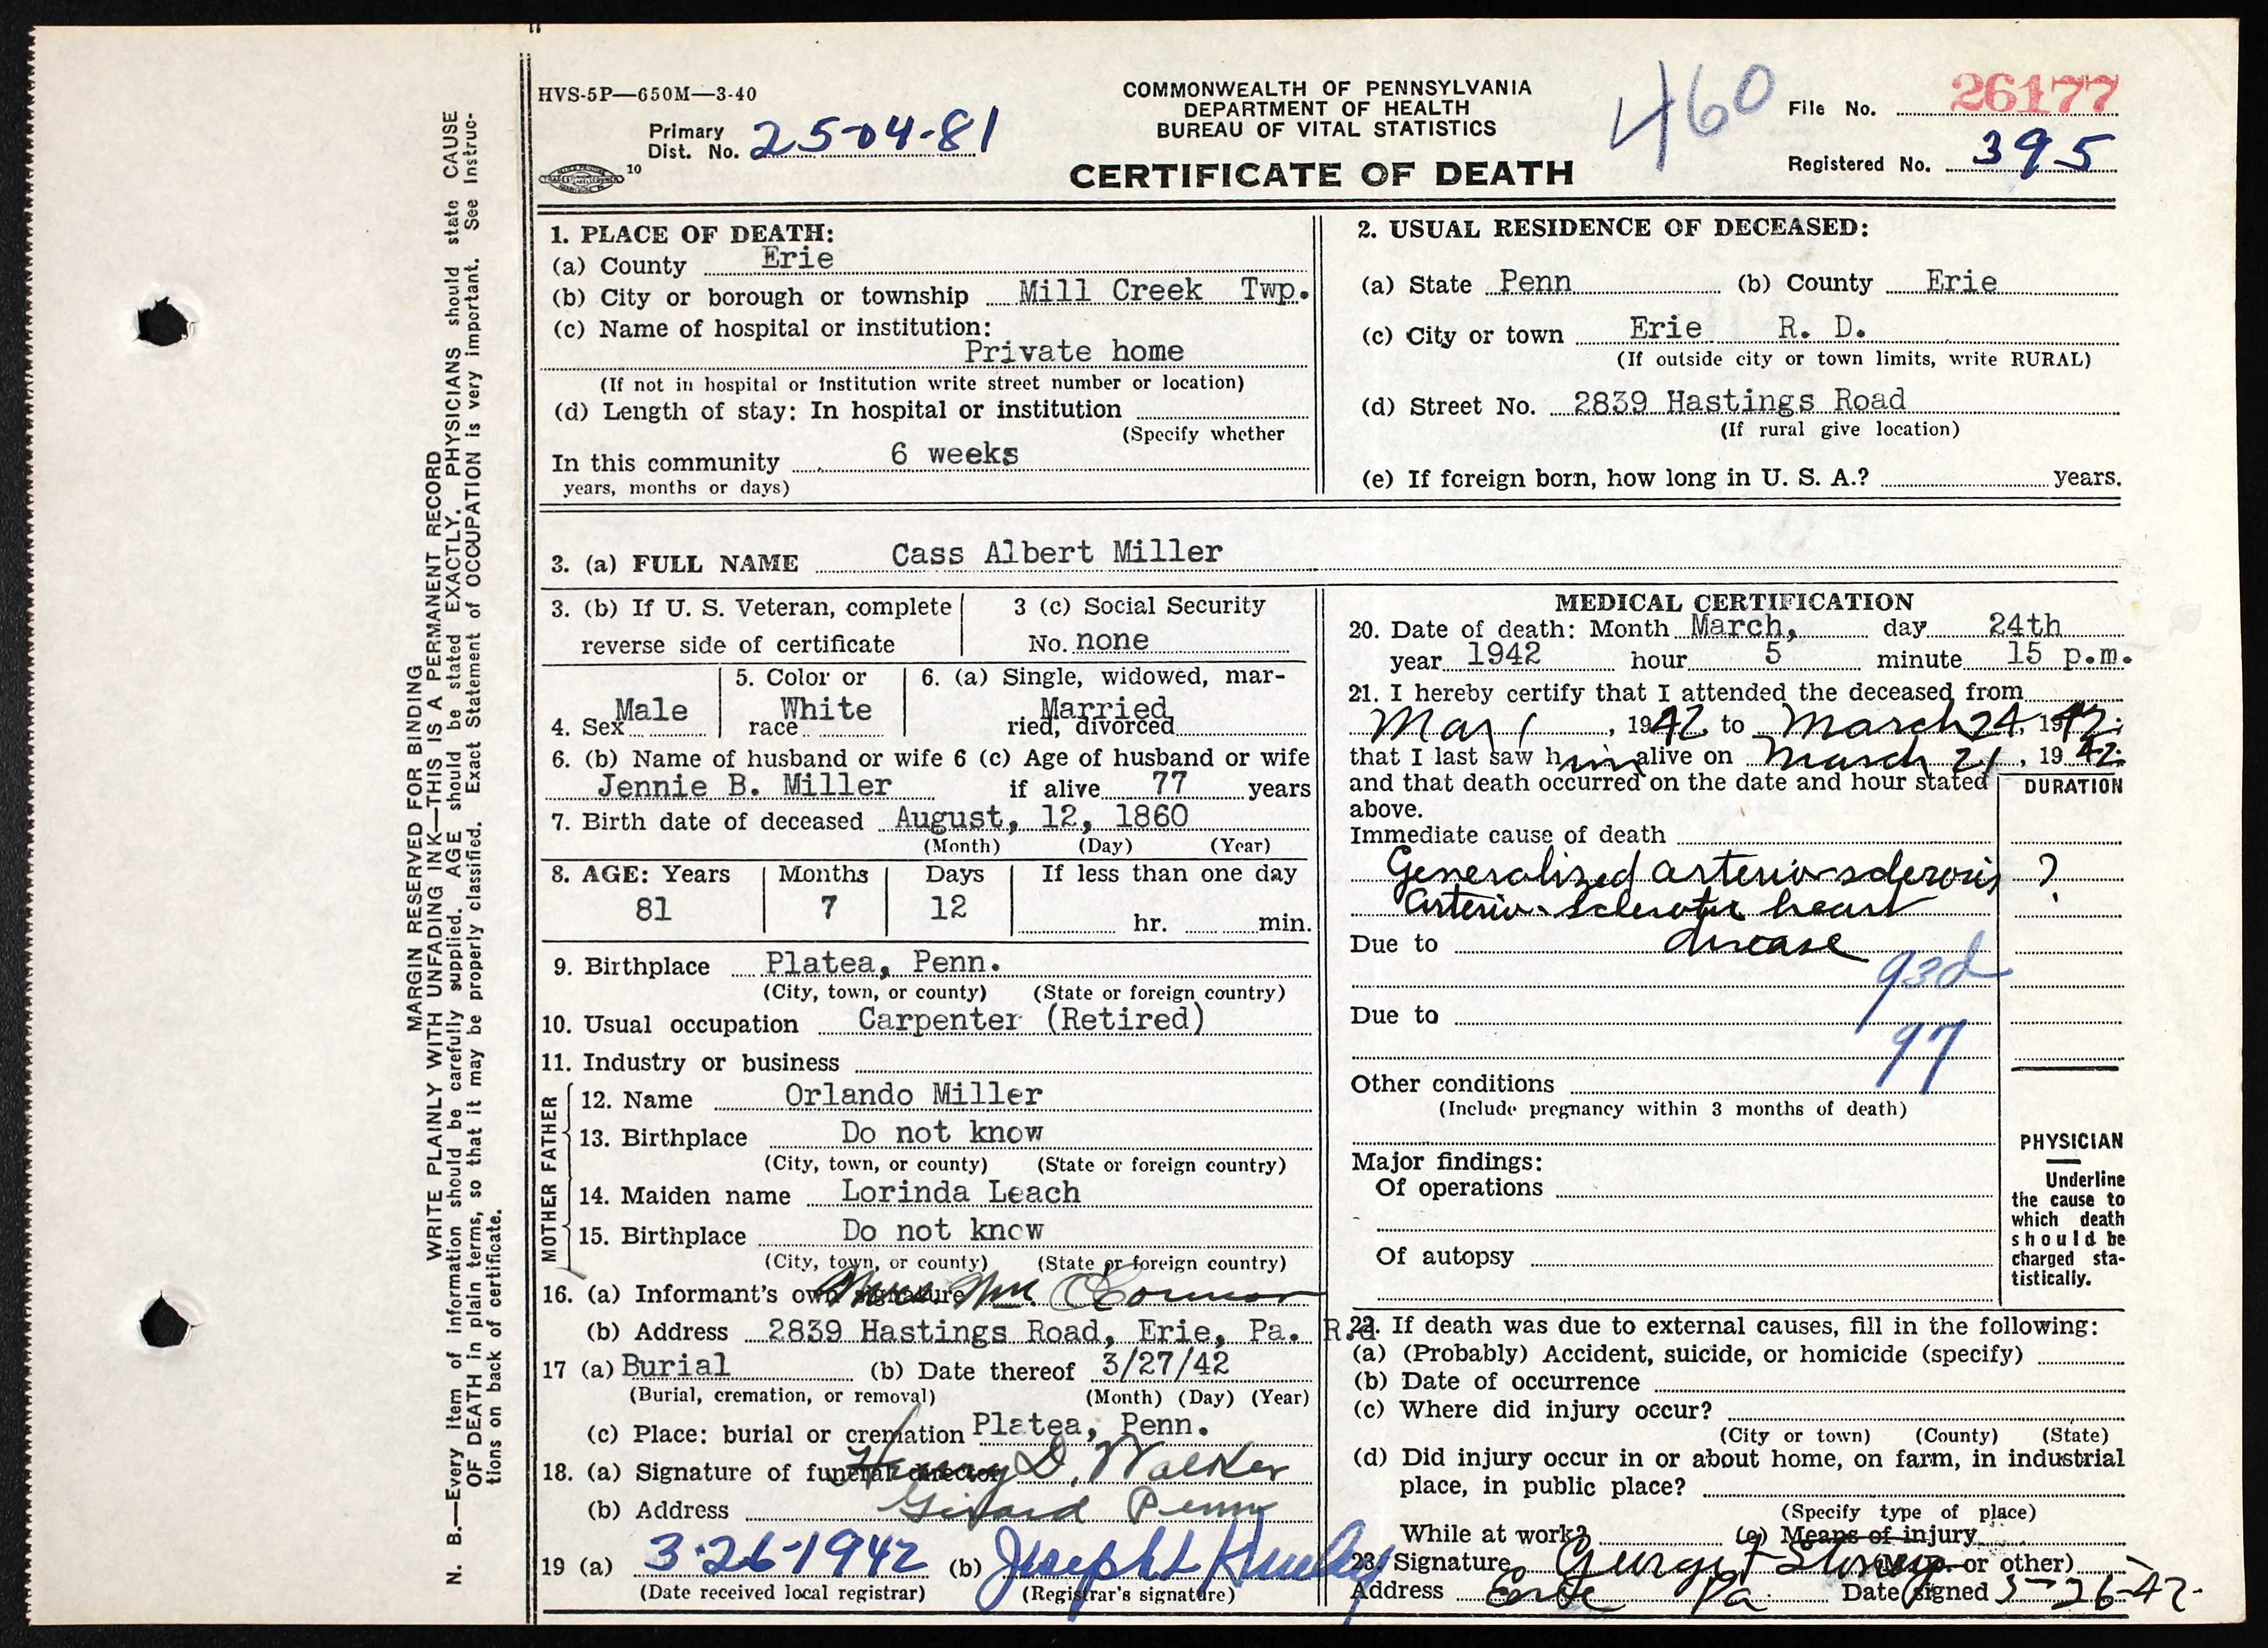 HVS-5P—650M—3-40
COMMONWEALTH OF PENNSYLVANIA
DEPARTMENT OF HEALTH
BUREAU OF VITAL STATISTICS
CERTIFICATE OF DEATH
460
File No. 26177
Registered No. 395
Primary
Dist. No. 25-04-81
10
MARGIN RESERVED FOR BINDING
WRITE PLAINLY WITH UNFADING INK—THIS IS A PERMANENT RECORD
N. B.—Every item of information should be carefully supplied. AGE should be stated EXACTLY. PHYSICIANS should state CAUSE
OF DEATH in plain terms, so that it may be properly classified. Exact Statement of OCCUPATION is very important. See Instruc-
tions on back of certificate.
1. PLACE OF DEATH:
(a) County Erie
(b) City or borough or township Mill Creek Twp.
(c) Name of hospital or institution:
Private home
(If not in hospital or institution write street number or location)
(d) Length of stay: In hospital or institution
(Specify whether
In this community 6 weeks
years, months or days)
2. USUAL RESIDENCE OF DECEASED:
(a) State Penn (b) County Erie
(c) City or town Erie R. D.
(If outside city or town limits, write RURAL)
(d) Street No. 2839 Hastings Road
(If rural give location)
(e) If foreign born, how long in U. S. A.? years.
3. (a) FULL NAME Cass Albert Miller
3. (b) If U. S. Veteran, complete
reverse side of certificate
3 (c) Social Security
No. none
4. Sex Male
5. Color or
race White
6. (a) Single, widowed, mar-
ried, divorced Married
6. (b) Name of husband or wife 6 (c) Age of husband or wife
Jennie B. Miller if alive 77 years
7. Birth date of deceased August, 12, 1860
(Month) (Day) (Year)
8. AGE: Years Months Days If less than one day
81 7 12 hr. min.
9. Birthplace Platea, Penn.
(City, town, or county) (State or foreign country)
10. Usual occupation Carpenter (Retired)
11. Industry or business
FATHER
12. Name Orlando Miller
13. Birthplace Do not know
(City, town, or county) (State or foreign country)
MOTHER
14. Maiden name Lorinda Leach
15. Birthplace Do not know
(City, town, or county) (State or foreign country)
16. (a) Informant's own signature Mrs. Wm. O'Connor
(b) Address 2839 Hastings Road, Erie, Pa. R.d.
17 (a) Burial (b) Date thereof 3/27/42
(Burial, cremation, or removal) (Month) (Day) (Year)
(c) Place: burial or cremation Platea, Penn.
18. (a) Signature of funeral director Henry D. Walker
(b) Address Girard Penn
19 (a) 3-26-1942 (b) Joseph L
(Date received local registrar) (Registrar's signature)
MEDICAL CERTIFICATION
20. Date of death: Month March, day 24th
year 1942 hour 5 minute 15 p.m.
21. I hereby certify that I attended the deceased from
Mar 1, 1942, to March 24, 1942;
that I last saw him alive on March 21, 1942;
and that death occurred on the date and hour stated
above.
DURATION
Immediate cause of death
Generalized arterio-sclerosis ?
arterio-sclerotic heart
Due to disease
93d
Due to
97
Other conditions
(Include pregnancy within 3 months of death)
Major findings:
Of operations
Of autopsy
PHYSICIAN
Underline
the cause to
which death
should be
charged sta-
tistically.
22. If death was due to external causes, fill in the following:
(a) (Probably) Accident, suicide, or homicide (specify)
(b) Date of occurrence
(c) Where did injury occur?
(City or town) (County) (State)
(d) Did injury occur in or about home, on farm, in industrial
place, in public place?
(Specify type of place)
While at work? (e) Means of injury
23. Signature George (M.D. or other)
Address Erie Pa Date signed 3-26-42